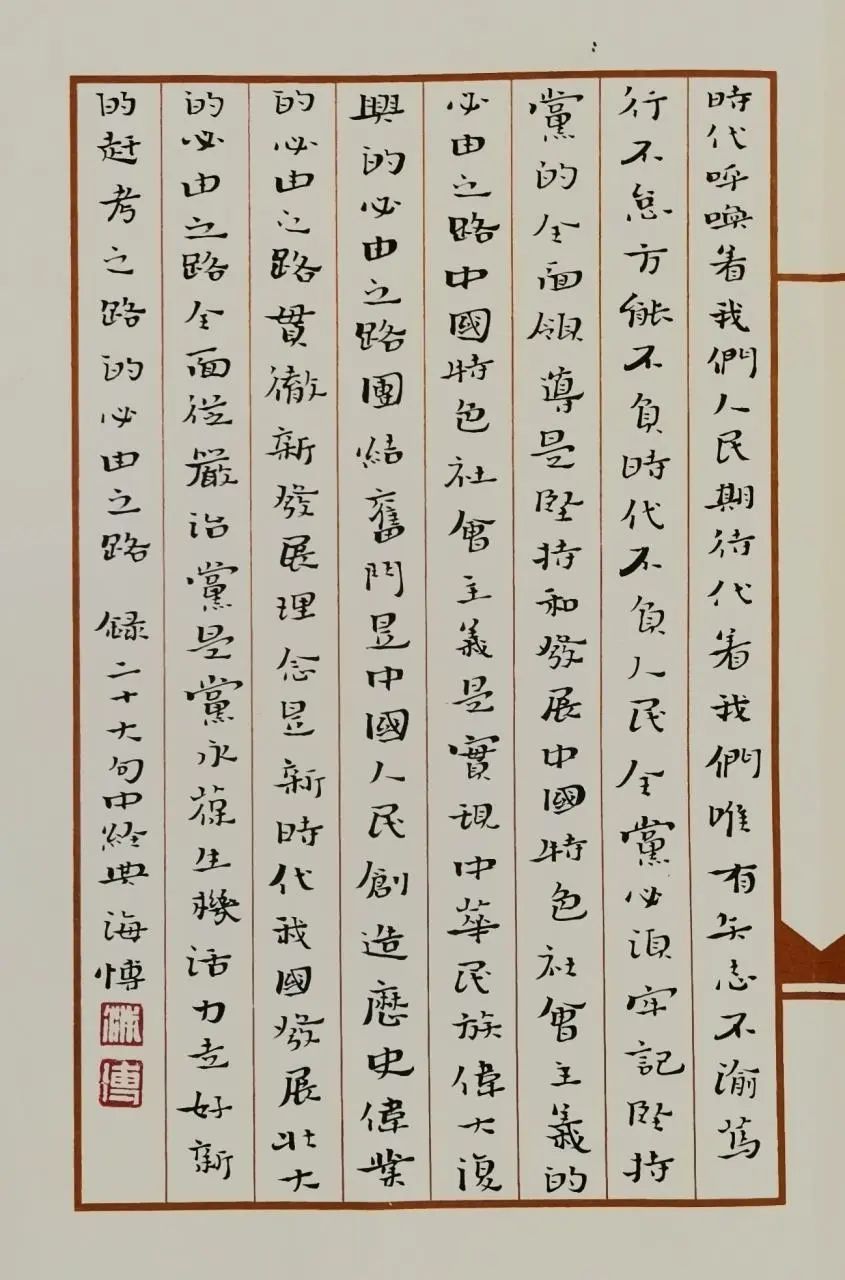 時代呼喚着我們人民期待代着我們唯有矢志不渝笃
行不怠方能不負時代不負人民全黨必須牢記堅持
黨的全面領導是堅持和發展中國特色社會主義的
必由之路中國特色社會主義是實現中華民族偉大復
興的必由之路團結奮鬥是中國人民創造歷史偉業
的必由之路貫徹新發展理念是新時代我國發展壯大
的必由之路全面從嚴治黨是黨永葆生機活力走好新
的赶考之路的必由之路 録二十大句中經典海愽